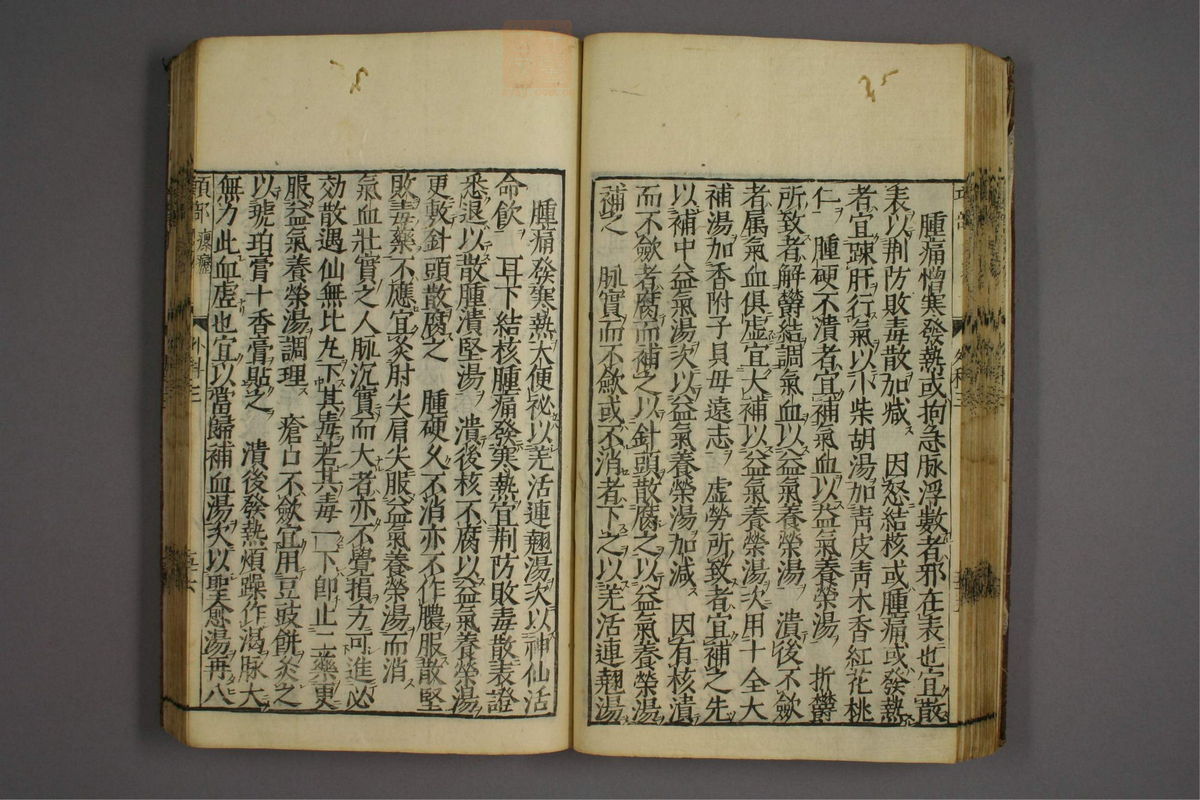 腫痛憎寒發熱或拘急脉浮數者邪在表也宜散
表以荆防敗毒散加减 因怒結核或腫痛或發熱
者宜踈肝行氣以小柴胡湯加靑皮靑木香紅花桃
仁 腫硬不潰者宜補氣血以益氣養榮湯 折欝
所致者解欝結調氣血以益氣養榮湯 潰後不斂
者属氣血俱虚宜大補以益氣養榮湯次用十全大
補湯加香附子貝母遠志 虚勞所致者宜補之先
以補中益氣湯次以益氣養榮湯加减 因有核潰
而不斂者腐而補之以針頭散腐之以益氣養榮湯
補之 脉實而不斂或不消者下之以羌活連翹湯
腫痛發寒熱大便祕以羌活連翹湯次以神仙活
命飲 耳下結核腫痛發寒熱宜荆防敗毒散表證
悉退以散腫潰堅湯 潰後核不腐以益氣養榮湯
更敷針頭散腐之 腫硬久不消亦不作膿服散堅
敗毒藥不應宜灸肘尖肩尖服益氣養榮湯而消
氣血壯實之人脉沉實而大者亦不覺損方可進必
効散遇仙無比丸下其毒若其毒一下卽止二藥更
服益氣養榮湯調理 瘡口不斂宜用豆豉餅灸之
以琥珀膏十香膏貼之 潰後發熱煩躁作渇脉大
無力此血虚也宜以當歸補血湯又以聖愈湯再八
項部 瘰癧
外科三
五十六
外科三